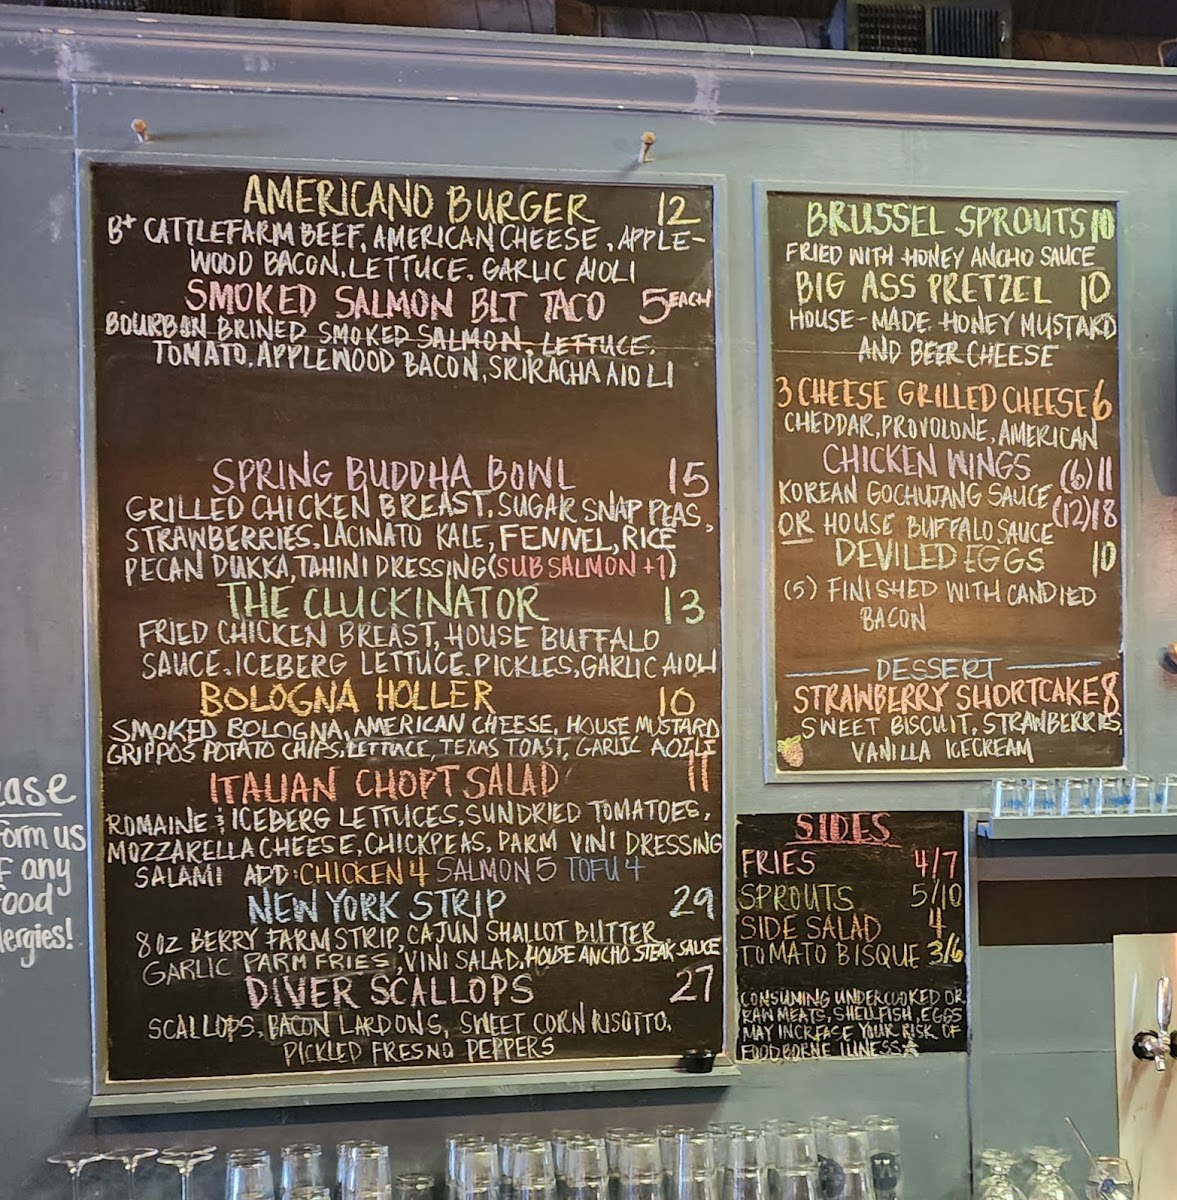 AMERICANO BURGER 12
B+ CATTLEFARM BEEF, AMERICAN CHEESE, APPLE-
WOOD BACON, LETTUCE. GARLIC AIOLI
SMOKED SALMON BLT TACO 5 EACH
BOURBON BRINED SMOKED SALMON, LETTUCE,
TOMATO, APPLEWOOD BACON, SRIRACHA AIOLI
SPRING BUDDHA BOWL 15
GRILLED CHICKEN BREAST, SUGAR SNAP PEAS,
STRAWBERRIES, LACINATO KALE, FENNEL, RICE
PECAN DUKKA, TAHINI DRESSING (SUB SALMON +1)
THE CLUCKINATOR 13
FRIED CHICKEN BREAST, HOUSE BUFFALO
SAUCE, ICEBERG LETTUCE. PICKLES, GARLIC AIOLI
BOLOGNA HOLLER 10
SMOKED BOLOGNA, AMERICAN CHEESE, HOUSE MUSTARD
GRIPPOS POTATO CHIPS, LETTUCE, TEXAS TOAST, GARLIC AOILI
ITALIAN CHOPT SALAD 11
ROMAINE & ICEBERG LETTUCES, SUNDRIED TOMATOES,
MOZZARELLA CHEESE, CHICKPEAS, PARM VINI DRESSING
SALAMI ADD: CHICKEN 4 SALMON 5 TOFU 4
NEW YORK STRIP 29
8 OZ BERRY FARM STRIP, CAJUN SHALLOT BUTTER
GARLIC PARM FRIES, VINI SALAD, HOUSE ANCHO STEAK SAUCE
DIVER SCALLOPS 27
SCALLOPS, BACON LARDONS, SWEET CORN RISOTTO,
PICKLED FRESNO PEPPERS
BRUSSEL SPROUTS 10
FRIED WITH HONEY ANCHO SAUCE
BIG ASS PRETZEL 10
HOUSE-MADE HONEY MUSTARD
AND BEER CHEESE
3 CHEESE GRILLED CHEESE 6
CHEDDAR, PROVOLONE, AMERICAN
CHICKEN WINGS (6) 11
KOREAN GOCHUJANG SAUCE (12) 18
OR HOUSE BUFFALO SAUCE
DEVILED EGGS 10
(5) FINISHED WITH CANDIED
BACON
DESSERT
STRAWBERRY SHORTCAKE 8
SWEET BISCUIT, STRAWBERRIES,
VANILLA ICECREAM
SIDES
FRIES 4/7
SPROUTS 5/10
SIDE SALAD 4
TOMATO BISQUE 3/6
CONSUMING UNDERCOOKED OR
RAW MEATS, SHELLFISH, EGGS
MAY INCREASE YOUR RISK OF
FOODBORNE ILLNESS
ease
form us
f any
food
lergies!